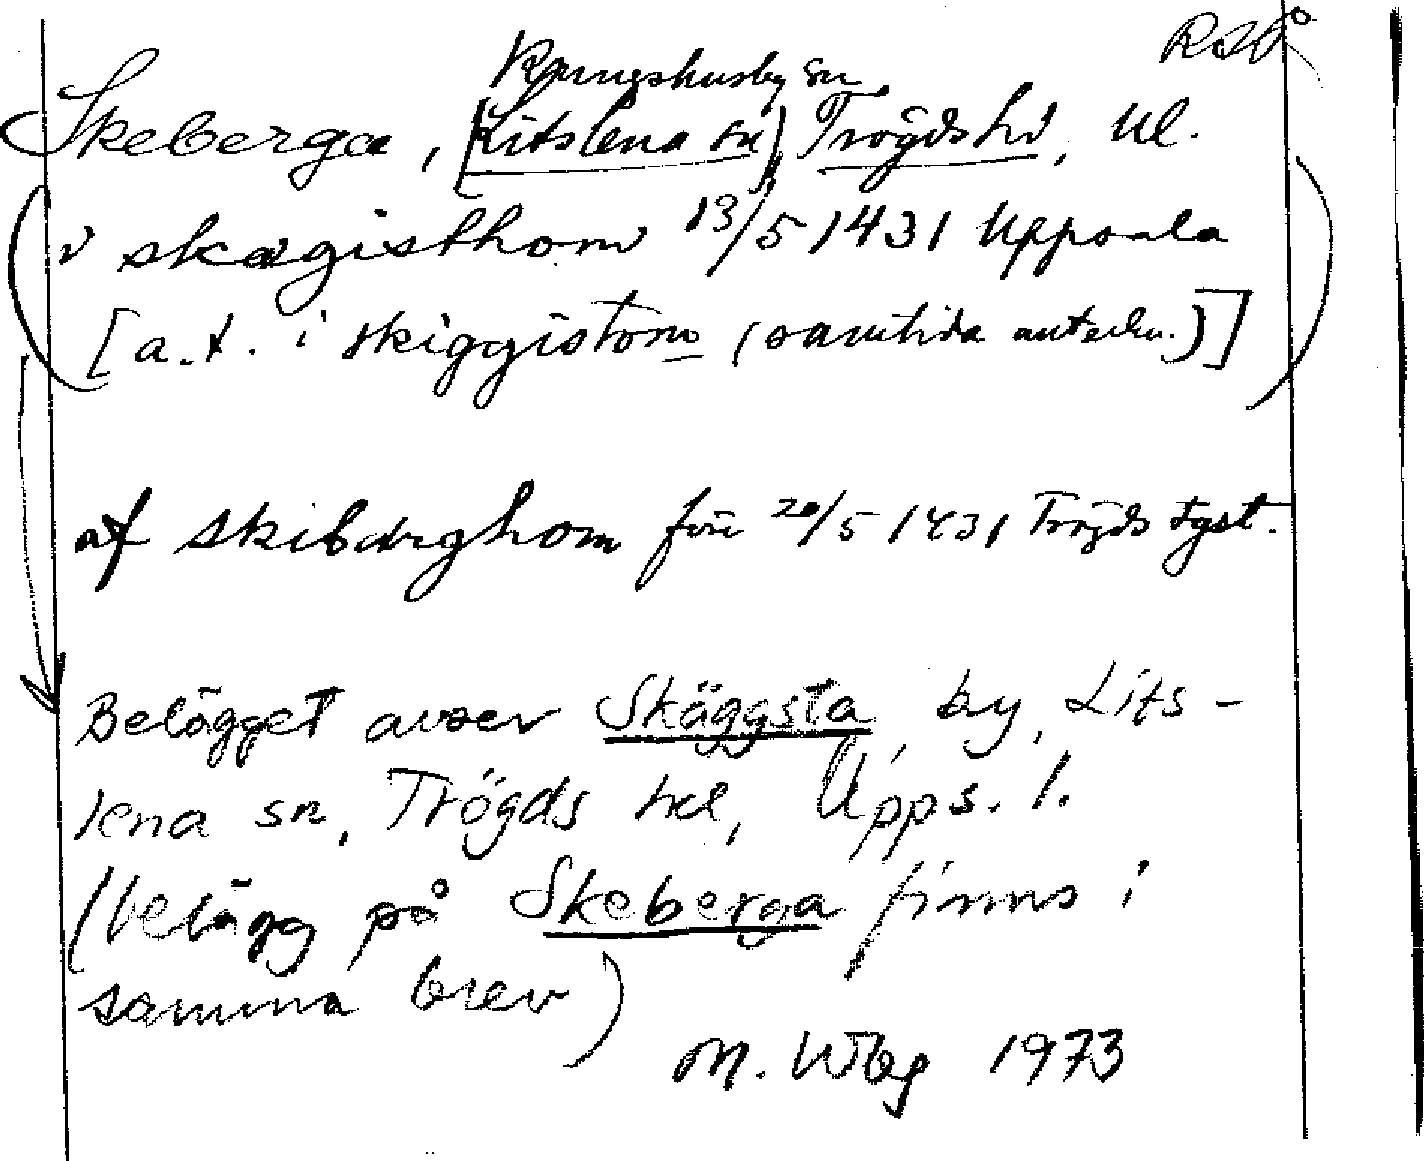 RSÅ
Kungshusby sn
Skeberga, [Litslena sn], Trögds hd, Ul.
(v skægisthom 13/5 1431 Uppsala
[a.t. i skiggistom (samtida anteckn.)])
af skibærghom före 20/5 1431 Trögds tgst.
Belägget avser Skäggsta, by, Lits-
lena sn, Trögds hd, Upps. l.
(belägg på Skeberga finns i
samma brev)
M. Wbg 1973